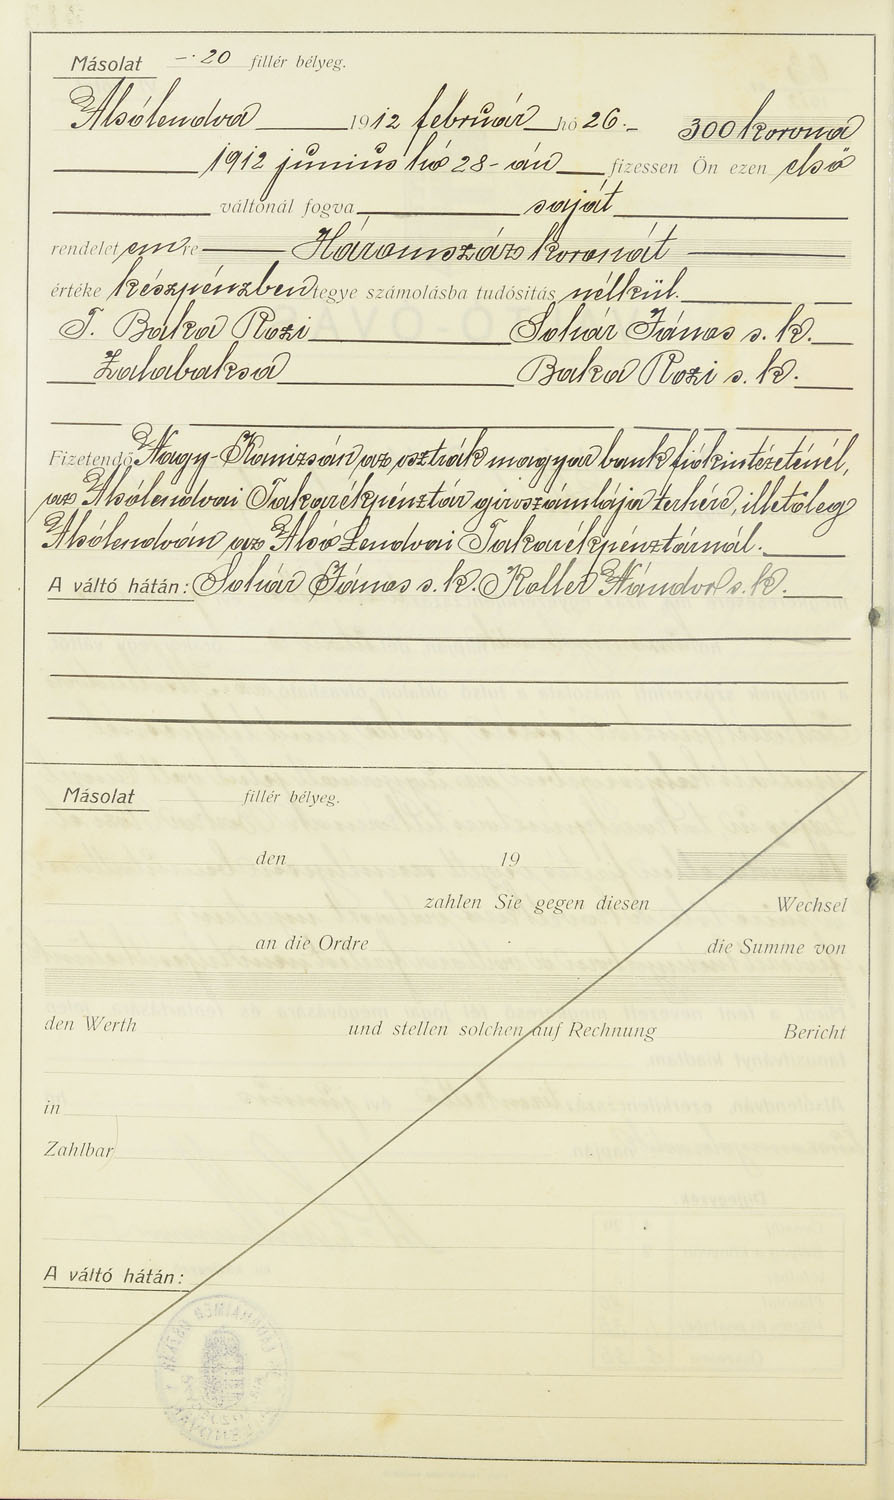 Másolat -·20 fillér bélyeg.
Alsólendva 1912 február hó 26.- 300 korona
1912 június hó 28-án fizessen Ön ezen első
váltónál fogva saját
rendelet emre Háromszáz koronát
értéke készpénzben tegye számolásba tudósitás nélkül.
T. Baka Rozi Sohár János s. k.
Zalabaksa Baka Rozi s. k.
Fizetendő Nagy-Kanizsán az osztrák magyar bank fiókintézeténél,
az Alsólendvai Takarékpénztár giroszámlája terhére, illetőleg
Alsólendván az Alsó Lendvai Takarékpénztárnál.
A váltó hátán: Sohár János s. k. Koller Nándor s. k.
Másolat fillér bélyeg.
den 19
zahlen Sie gegen diesen Wechsel
an die Ordre die Summe von
den Werth und stellen solchen auf Rechnung Bericht
in
Zahlbar
A váltó hátán: